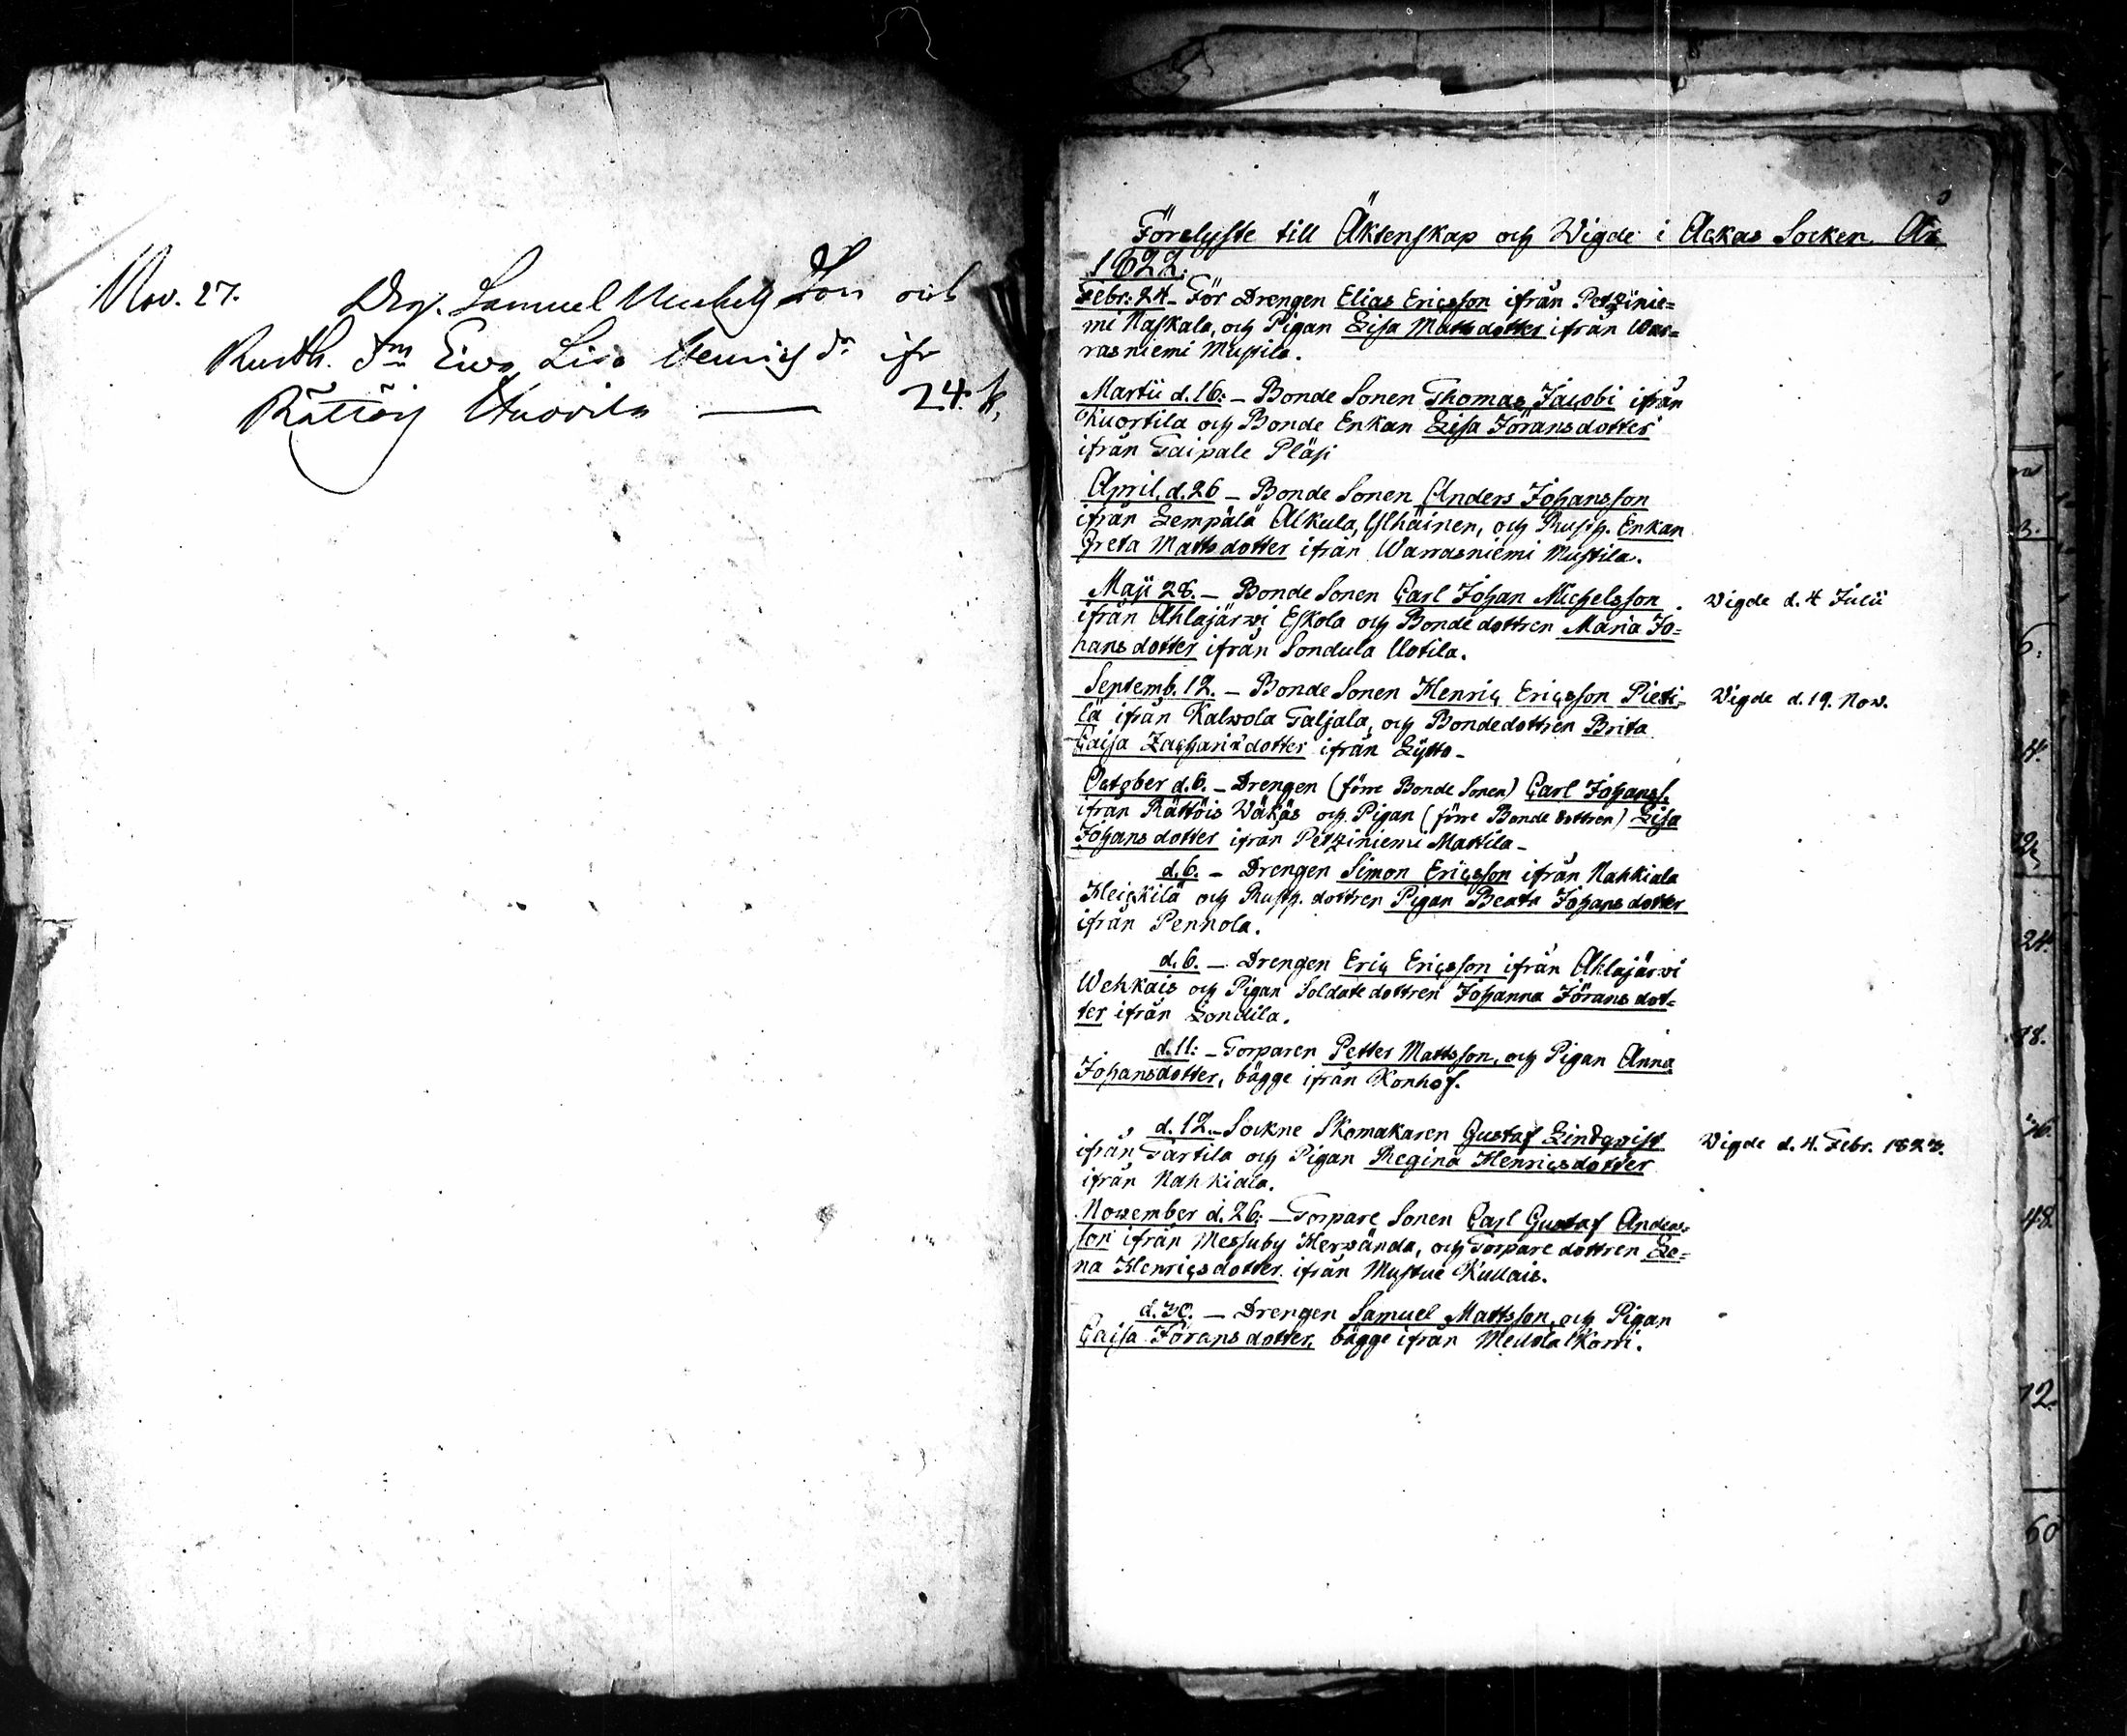 Nov. 27. Drg. Samuel Michels Son och
Rusth. Eiva Lisa Henrichs dr ifr
Rättöis Anovila — 24. k.
Förelyste till Äktenskap och Wigde i Ackas Socken År
1822.
Febr: 24 - För Drengen Elias Ericsson ifrån Petzinie=
mi Naskala, och Pigan Lisa Mattsdotter ifrån War=
rasniemi Mustila.
Martii d. 16: - Bonde Sonen Thomas Jacobi ifrån
Kuortila och Bonde Enkan Lisa Jöransdotter
ifrån Taipale Pläsi
April. d. 26 - Bonde Sonen Anders Johansson
ifrån Lempälä Alkula Ylhäinen, och Rusth. Enkan
Greta Mattsdotter ifrån Warrasniemi Mustila.
Maji 28. - Bonde Sonen Carl Johan Michelsson
ifrån Ahlajärwi Eskola och Bondedottren Maria Jo=
hansdotter ifrån Sondula Uotila.
Wigde d. 4 Julii
Septemb. 12. - Bonde Sonen Henric Ericsson Pieti=
lä ifrån Kalwola Taljala, och Bondedottren Brita
Caisa Zachariædotter ifrån Lytto -
Wigde d. 19. Now.
October d. 6. - Drengen (förre Bonde Sonen) Carl Johanss.
ifrån Rättöis Wäkäs och Pigan (förre Bonde dottren) Lisa
Johansdotter ifrån Petziniemi Mattila -
d. 6. - Drengen Simon Ericsson ifrån Nahkiala
Heickilä och Rusth. dottren Pigan Beata Johansdotter
ifrån Pennola.
d. 6. - Drengen Eric Ericsson ifrån Ahlajärwi
Wehkais och Pigan Soldatedottren Johanna Jöransdot=
ter ifrån Londila.
d. 11: - Torparen Petter Mattsson, och Pigan Anna
Johansdotter, bägge ifrån Konhof.
d. 12. - Sockne Skomakaren Gustaf Lindqwist
ifrån Tartila och Pigan Regina Henricsdotter
ifrån Nahkiala.
Wigde d. 4. Febr. 1823.
Nowember d. 26: - Torpare Sonen Carl Gustaf Anders=
son ifrån Messuby Herwända, och Torpare dottren Le=
na Henricsdotter ifrån Mustue Kullais.
d. 30. - Drengen Samuel Mattsson, och Pigan
Caisa Jöransdotter, bägge ifrån Mellola Korri.
3.
6.
24.
48
12.
60